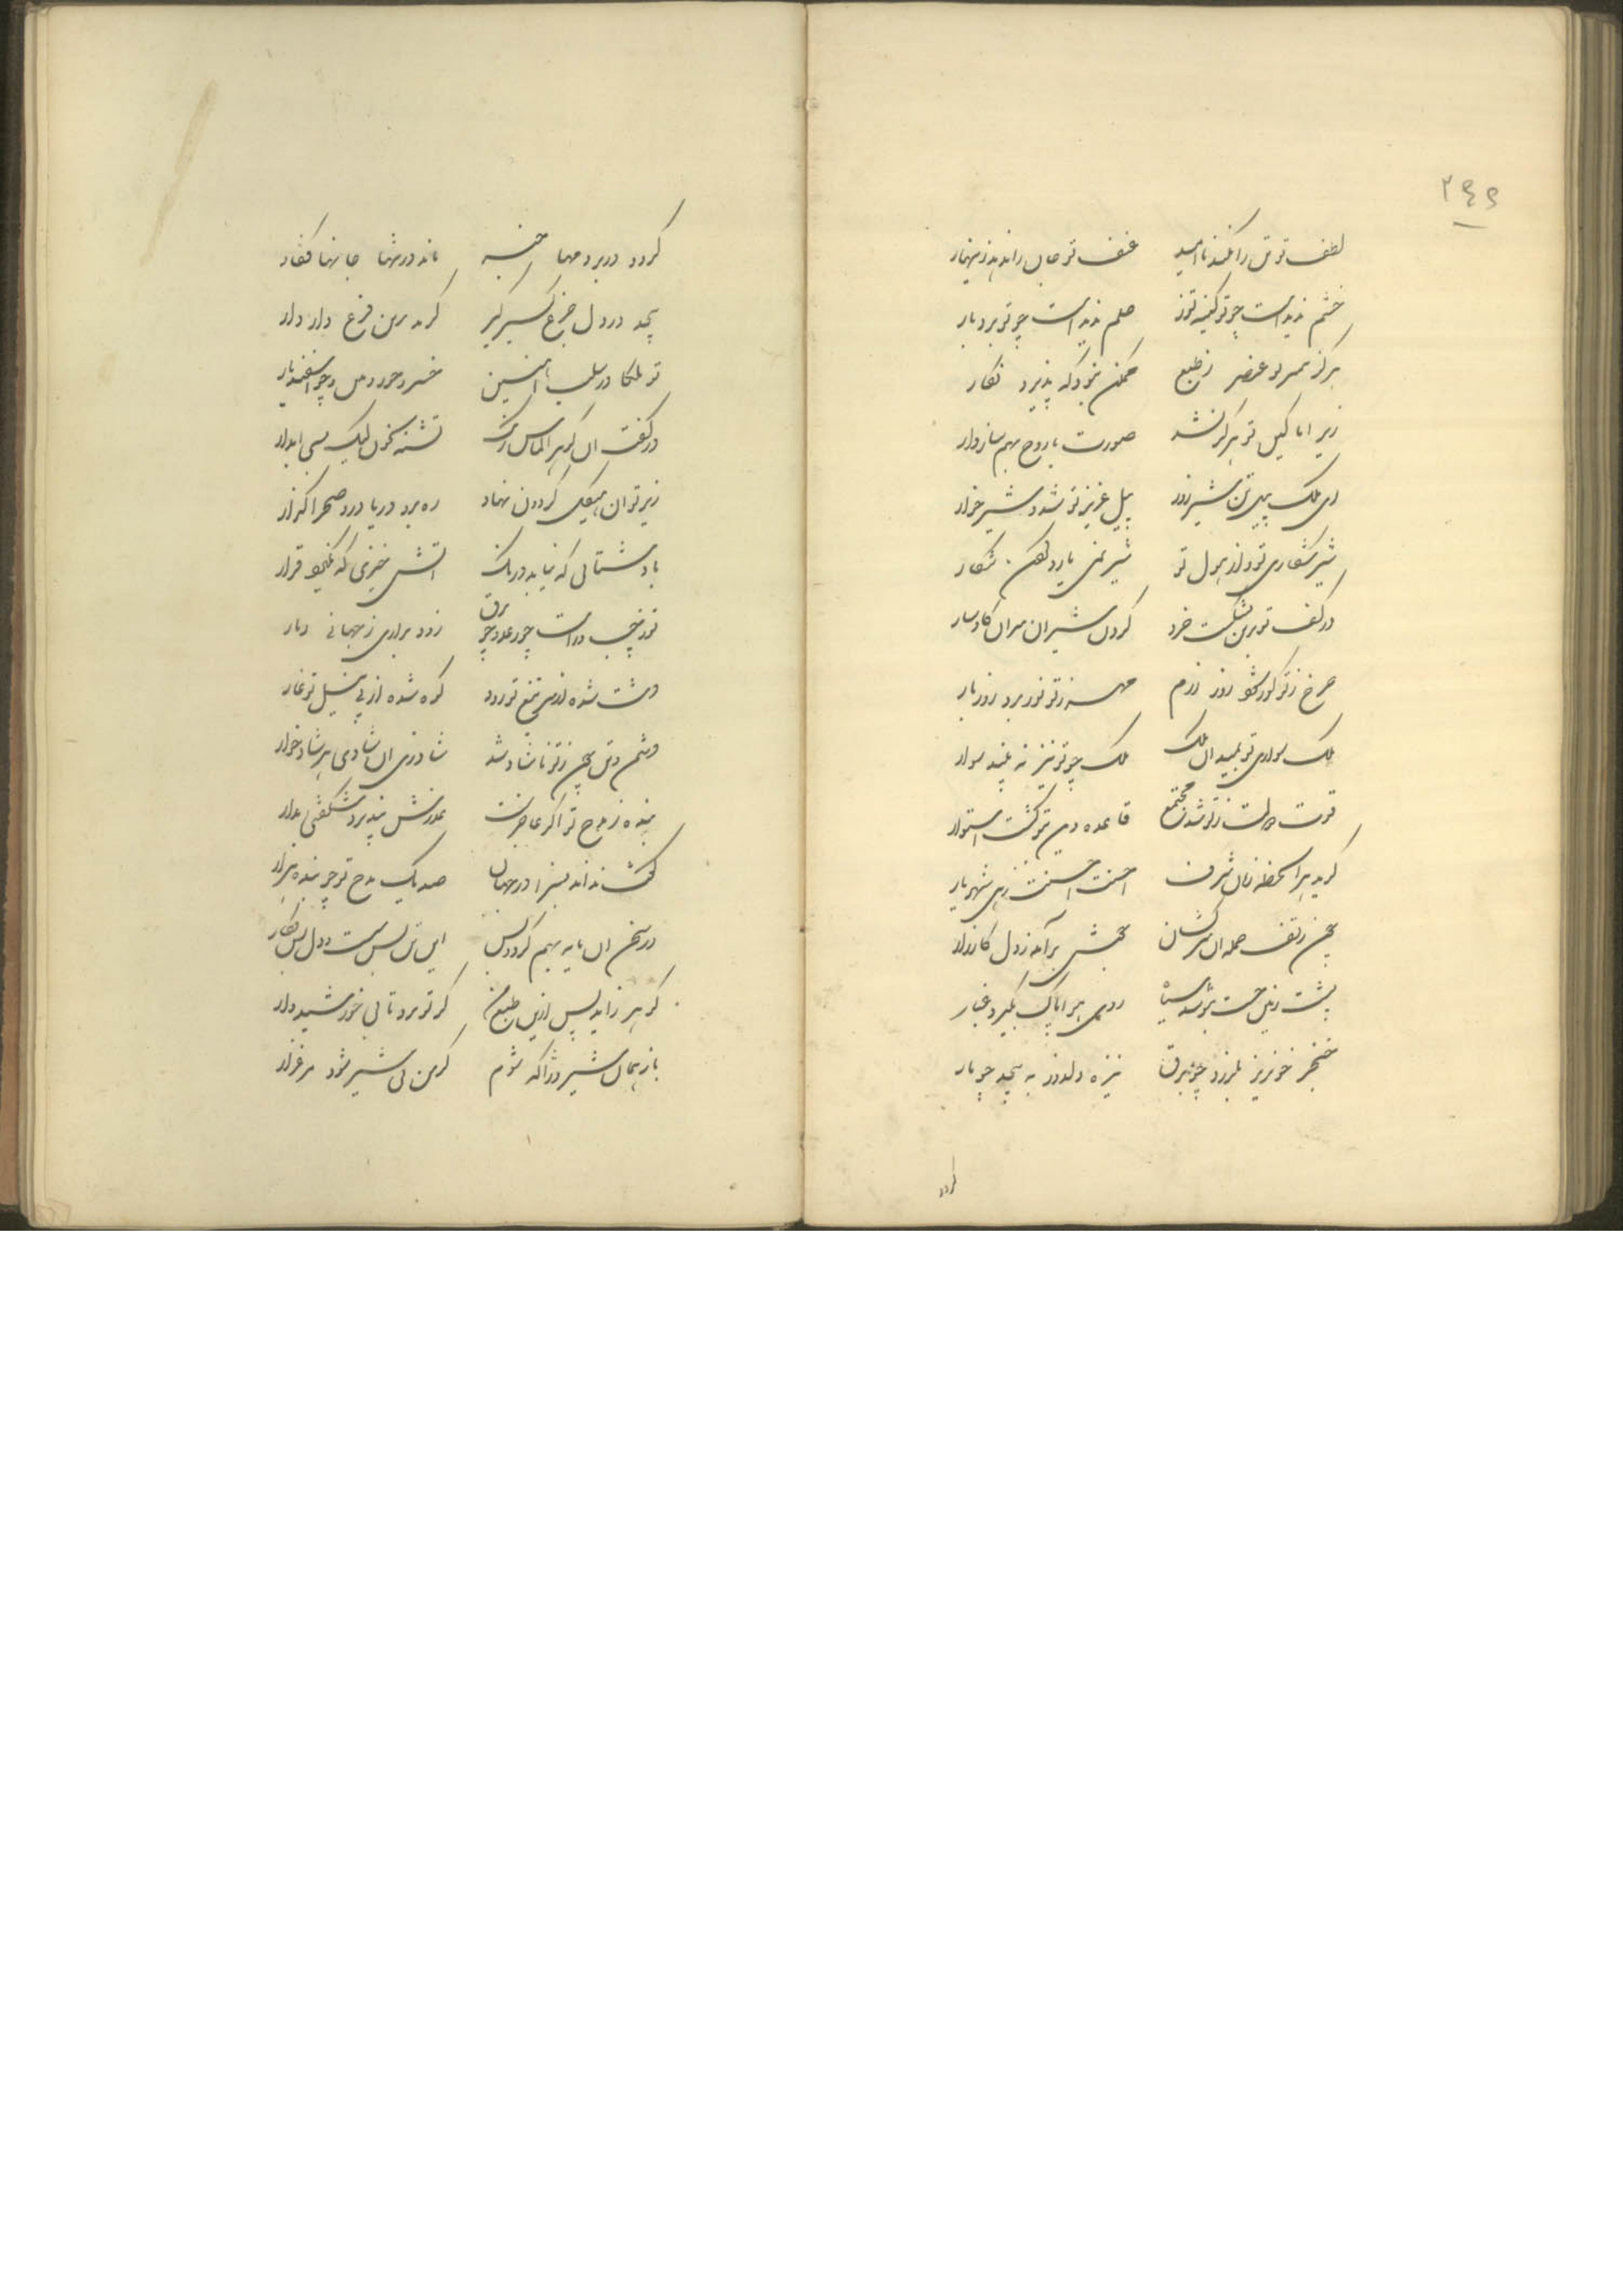 ۲۴۹
لطف تو تن را نکند ناامید عنف تو جان را ندهد زینهار
خشم ندیدست چو تو کینه توز حلم ندیدست چو تو بردبار
هرگز عنصر ز طبع ممکن نبود که پذیرد نگار
زیرا تا کیل تو هرگز نشد صورت با روح بهم سازوار
ای ملک پیل تن شیر زور پیل عزیز تو شد و شیر خوار
شیر شکاری تو و از هول تو شیر نمی یارد کردن شکار
در کف تو بشکست خرد گردن شیران سران گاوسار
چرخ ز تو کور شود روز رزم مه ز تو نور برد روز بار
ملک سواری تو ملک چو تو نیز نبیند سوار
قوت دولت ز تو شد مجتمع قاعده دین ز تو گشت استوار
گوید هر لحظه زبان شرف احسنت احسنت زهی شهریار
چون ز تف حمله آن سرکشان جوش برآمد ز دل کارزار
پشت زمین جست سیاه روی هوا پاک بگیرد غبار
خنجر خونریز بلرزد چو برق نیزه دلدوز بپیچد چو مار
گردد
گردد در بردمها خسته ماند در تنها جانها فگار
پیچد در دل فزع گیر گیر گرید بر تن فزع دار دار
تو ملکا در سلب آهنین خسرو چو اسفندیار
در کفت آن گوهر الماس رنگ تشنه بخون لیک بسی آبدار
زیر تو آن هیکل گردون نهاد ره برد دریا در و صحرا گذار
باد شتابی که نیابد درنگ آتش خیزی که نگیرد قرار
تو ز چپ و راست چو رعد و چو برق زود برآری ز جهانی دمار
دشت شده از سر تیغ تو رود کوه شده از پی پیل تو غار
دشمن دین چون ز تو ناشاد شد شادزی ای شاد می شادخوار
بنده ز مدح تو اگر عاجزست عذرش بپذیر و شگفتی مدار
گفت نداند بسزا در جهان صد یک مدح تو چو بنده هزار
در سخن آن مایه بهم کرد و بس این تن بس سست و دل بس فگار
گوهر زاید پس ازین طبع من گر تو برو تابی خورشیدوار
باز همان شیر دژآگه شوم گر من بی شیر شود مرغزار